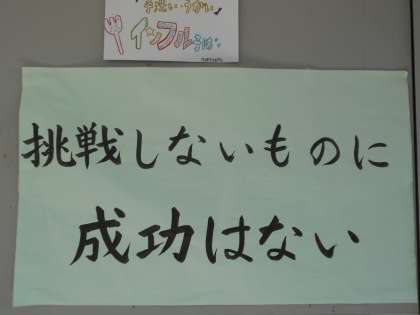 手洗い・うがい
インフルよぼう
挑戦しないものに
成功はない